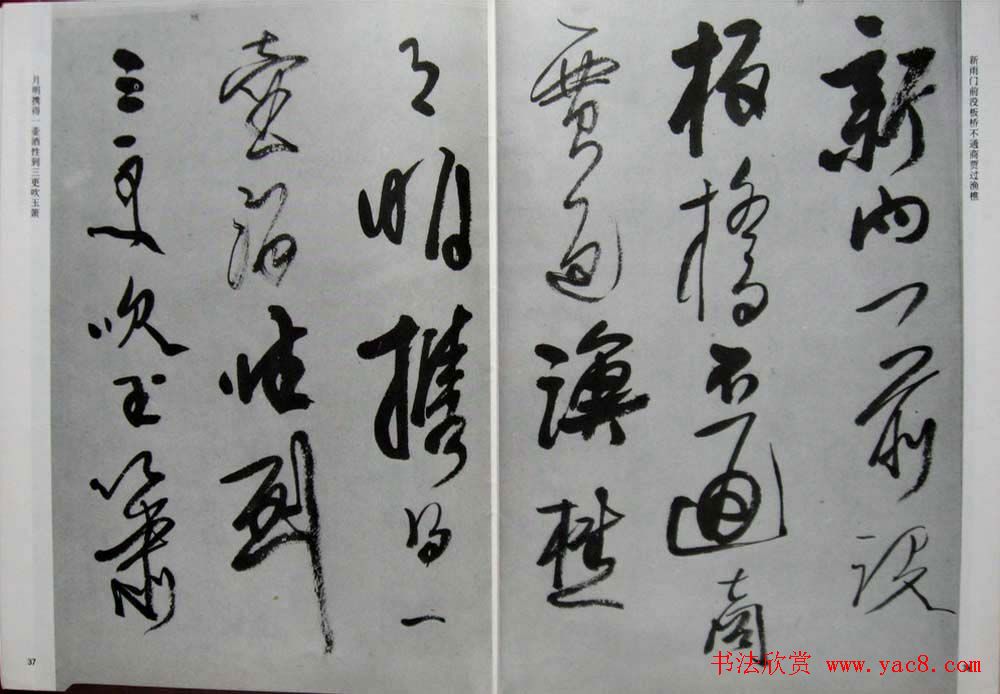 新雨门前没板桥不通商贾过渔樵
新雨门前没
板橋不通商
賈過漁樵
月明攜得一
壺酒性到
三更吹玉簫
月明携得一壶酒性到三更吹玉箫
37
书法欣赏 www.yac8.com